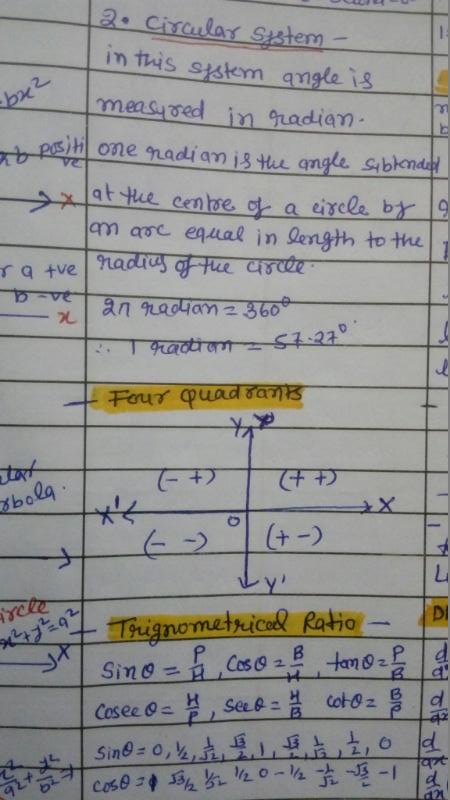 2. Circular System -
in this system angle is
measured in radian.
one radian is the angle subtended
at the centre of a circle by
an arc equal in length to the
radius of the circle.
2π radian = 360°
∴ 1 radian = 57.27°
- Four Quadrants
Y
(- +) (+ +)
X' O X
(- -) (+ -)
Y'
- Trignometrical Ratio -
Sinθ = P/H, Cosθ = B/H, tanθ = P/B
Cosecθ = H/P, Secθ = H/B cotθ = B/P
Sinθ = 0, 1/2, 1/√2, √3/2, 1, √3/2, 1/√3, 1/2, 0
cosθ = 1 √3/2 1/√2 1/2 0 -1/2 -1/√2 -√3/2 -1
bx²
positi
ve
x
r a +ve
b -ve
x
ular
rbola.
ircle
x²+y²=a²
X
x²/a² + y²/b² = 1